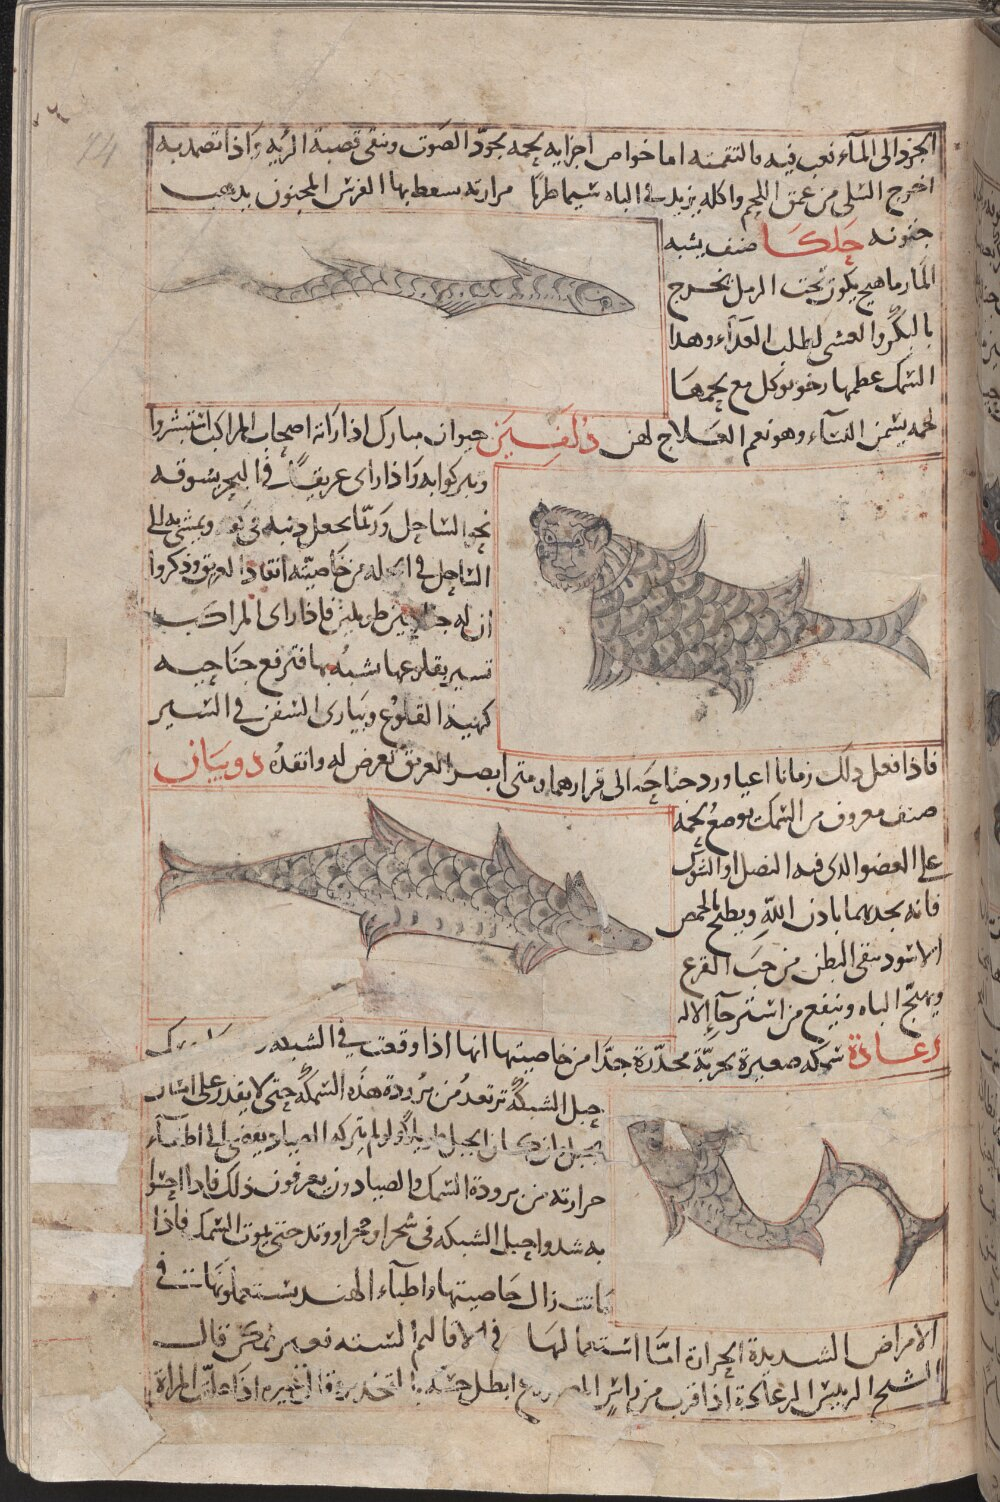 74
الجزو الى المآء نعب فيه فالتقمته اما خواص اجزايه لحمه يجوّد الصوت وينقى قصبة الريه واذا تضمد به
اخرج السلى من عمق اللحم واكله يزيد فى الباه سيما طريا مرارته يسعط بها الفرس المجنون يذهب
جنونه جلكا صنف يشبه
المارماهيج يكون تحت الرمل يخرج
بالبكر والعشى لطلب الغذآء وهذا
السمك عظمها رخو يوكل مع لحمها
لحمه يسمن النسآء وهو نعم العلاج لهن دلفيين حيوان مبارك اذا راته اصحاب المراكب استبشروا
وتبركوا به واذا راى غريقا فى البحر يسوقه
نحو الساحل وربّما يجعل ذنبه فى كفه ويمشى به الى
الساحل فى خاصيّته انقاذ الغريق وذكروا
ان له جناحين طويلين فاذا راى المراكب
تسير بقلوعها شبه بها فترفع جناحيه
كهيئة القلوع ويبارى السفن فى السير
فاذا فعل ذلك زمانا اعيا ورد جناحه الى قرارهما ومتى ابصر الغريق تعرض له وانقذه دوبيان
صنف معروف من السمك يوضع لحمه
على العضو الذى فيه النصل او الشوك
فانه يجذبهما باذن الله ويطبخ بالحمص
الاسود ينقى البطن من حب القرع
ويهيّج الباه وينفع من استرخآء الاله
رعادة سمكه صغيرة بحريّة مخدّرة جدّا من خاصيتها انها اذا وقعت فى الشبكه
حبل الشبكة ترتعد من برودة هذه السمكة حتى لا يقدر على امساك
الحبل وان كان الحبل طويلا ولو لم يتركه الصياد يفضى الى اطفآء
حرارته من برودة السمك والصيادون يعرفون ذلك فاذا احسّوا
به شدوا حبل الشبكه فى شجر او حجر او وتد حتى يموت السمك فاذا
ماتت زال خاصيتها واطبآء الهند يستعملونها فى
الامراض الشديدة الحرارة امّا استعمالها فى الاقاليم الستة فغير ممكن قال
الشيخ الرييس الرعادة اذا قرب من راس المصروع ابطل حسّه بالتخدير وقال غيره اذا علق المراة